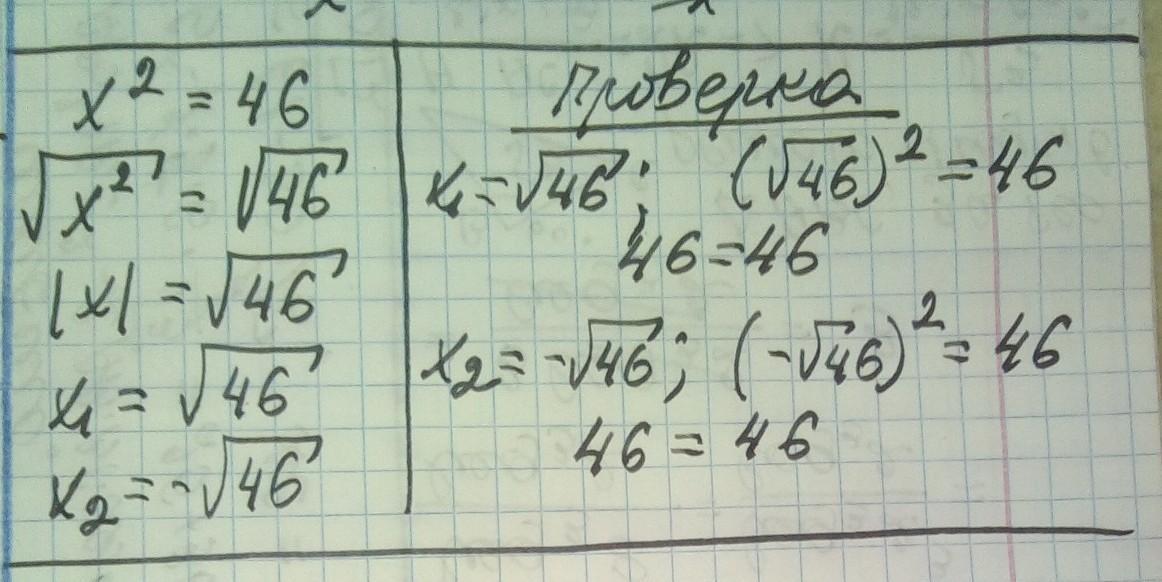 x² = 46
√x² = √46
|x| = √46
x₁ = √46
x₂ = -√46
Проверка
x₁ = √46; (√46)² = 46
46 = 46
x₂ = -√46; (-√46)² = 46
46 = 46